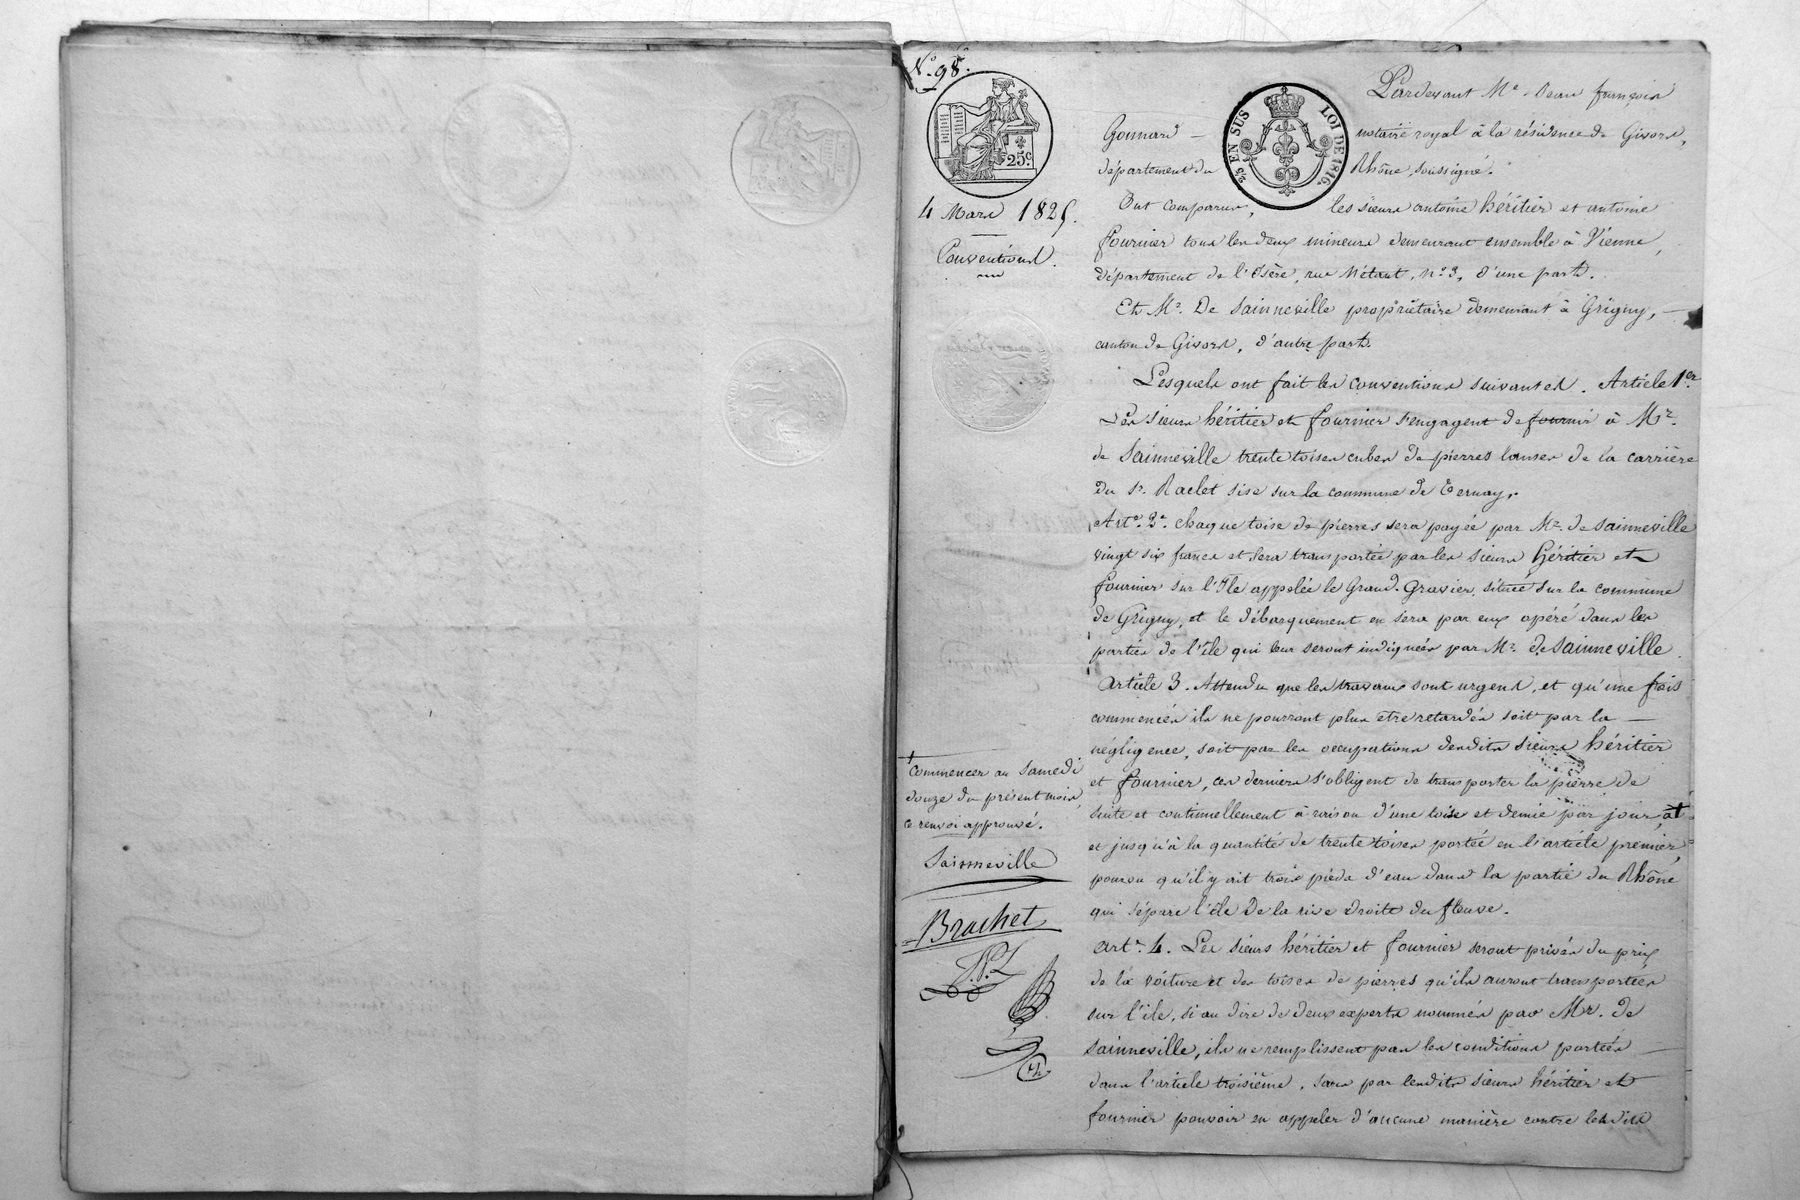 N.° 98.
25 c.
25 EN SUS
LOI DE 1816.
4 Mars 1825.
Conventions.
Pardevant Me. Jean françois
Gonnard — notaire royal à la résidence de Givors,
département du Rhône, soussigné.
Ont comparus, les sieurs antoine héritier et antoine
fournier tous les deux mineurs demeurant ensemble à Vienne,
département de l'Isère, rue n° 3, d'une part.
Et Mr. De Sainneville propriétaire demeurant à Grigny, —
canton de Givors, d'autre part.
Lesquels ont fait les conventions suivantes. Article 1er.
Les sieurs héritier et fournier s'engagent de fournir à Mr.
de Sainneville trente toises cubes de pierres de la carrière
du Sr. Raclet sise sur la commune de Ternay.
Art. 2e. chaque toise de pierres sera payée par Mr. de Sainneville
vingt six francs et sera transportée par les sieurs héritier et
fournier sur l'Ile appelée le Grand-Gravier, située sur la commune
de Grigny, et le débarquement en sera par eux opéré dans les
parties de l'île qui leur seront indiquées par Mr. de Sainneville.
Article 3. Attendu que les travaux sont urgens, et qu'une fois
commencés ils ne pourront plus etre retardés soit par la —
négligence, soit par les occupations desdits sieurs héritier
et fournier, ces derniers s'obligent de transporter la pierre de
suite et continuellement à raison d'une toise et demie par jour, à +
et jusqu'à la quantité de trente toises portée en l'article premier,
pourvu qu'il y ait trois pieds d'eau dans la partie du Rhône
qui sépare l'île de la rive droite du fleuve.
art. 4. Les sieurs héritier et fournier seront privés du prix
de la voiture et des toises de pierres qu'ils auront transportées
sur l'île, si au dire de deux experts nommés par Mr. de
Sainneville, ils ne remplissent pas les conditions portées —
dans l'article troisième, sans par lesdits sieurs héritier et
fournier pouvoir en appeler d'aucune manière contre lesdits
+
commencer au samedi
douze du présent mois,
ce renvoi approuvé.
Sainneville
Brachet